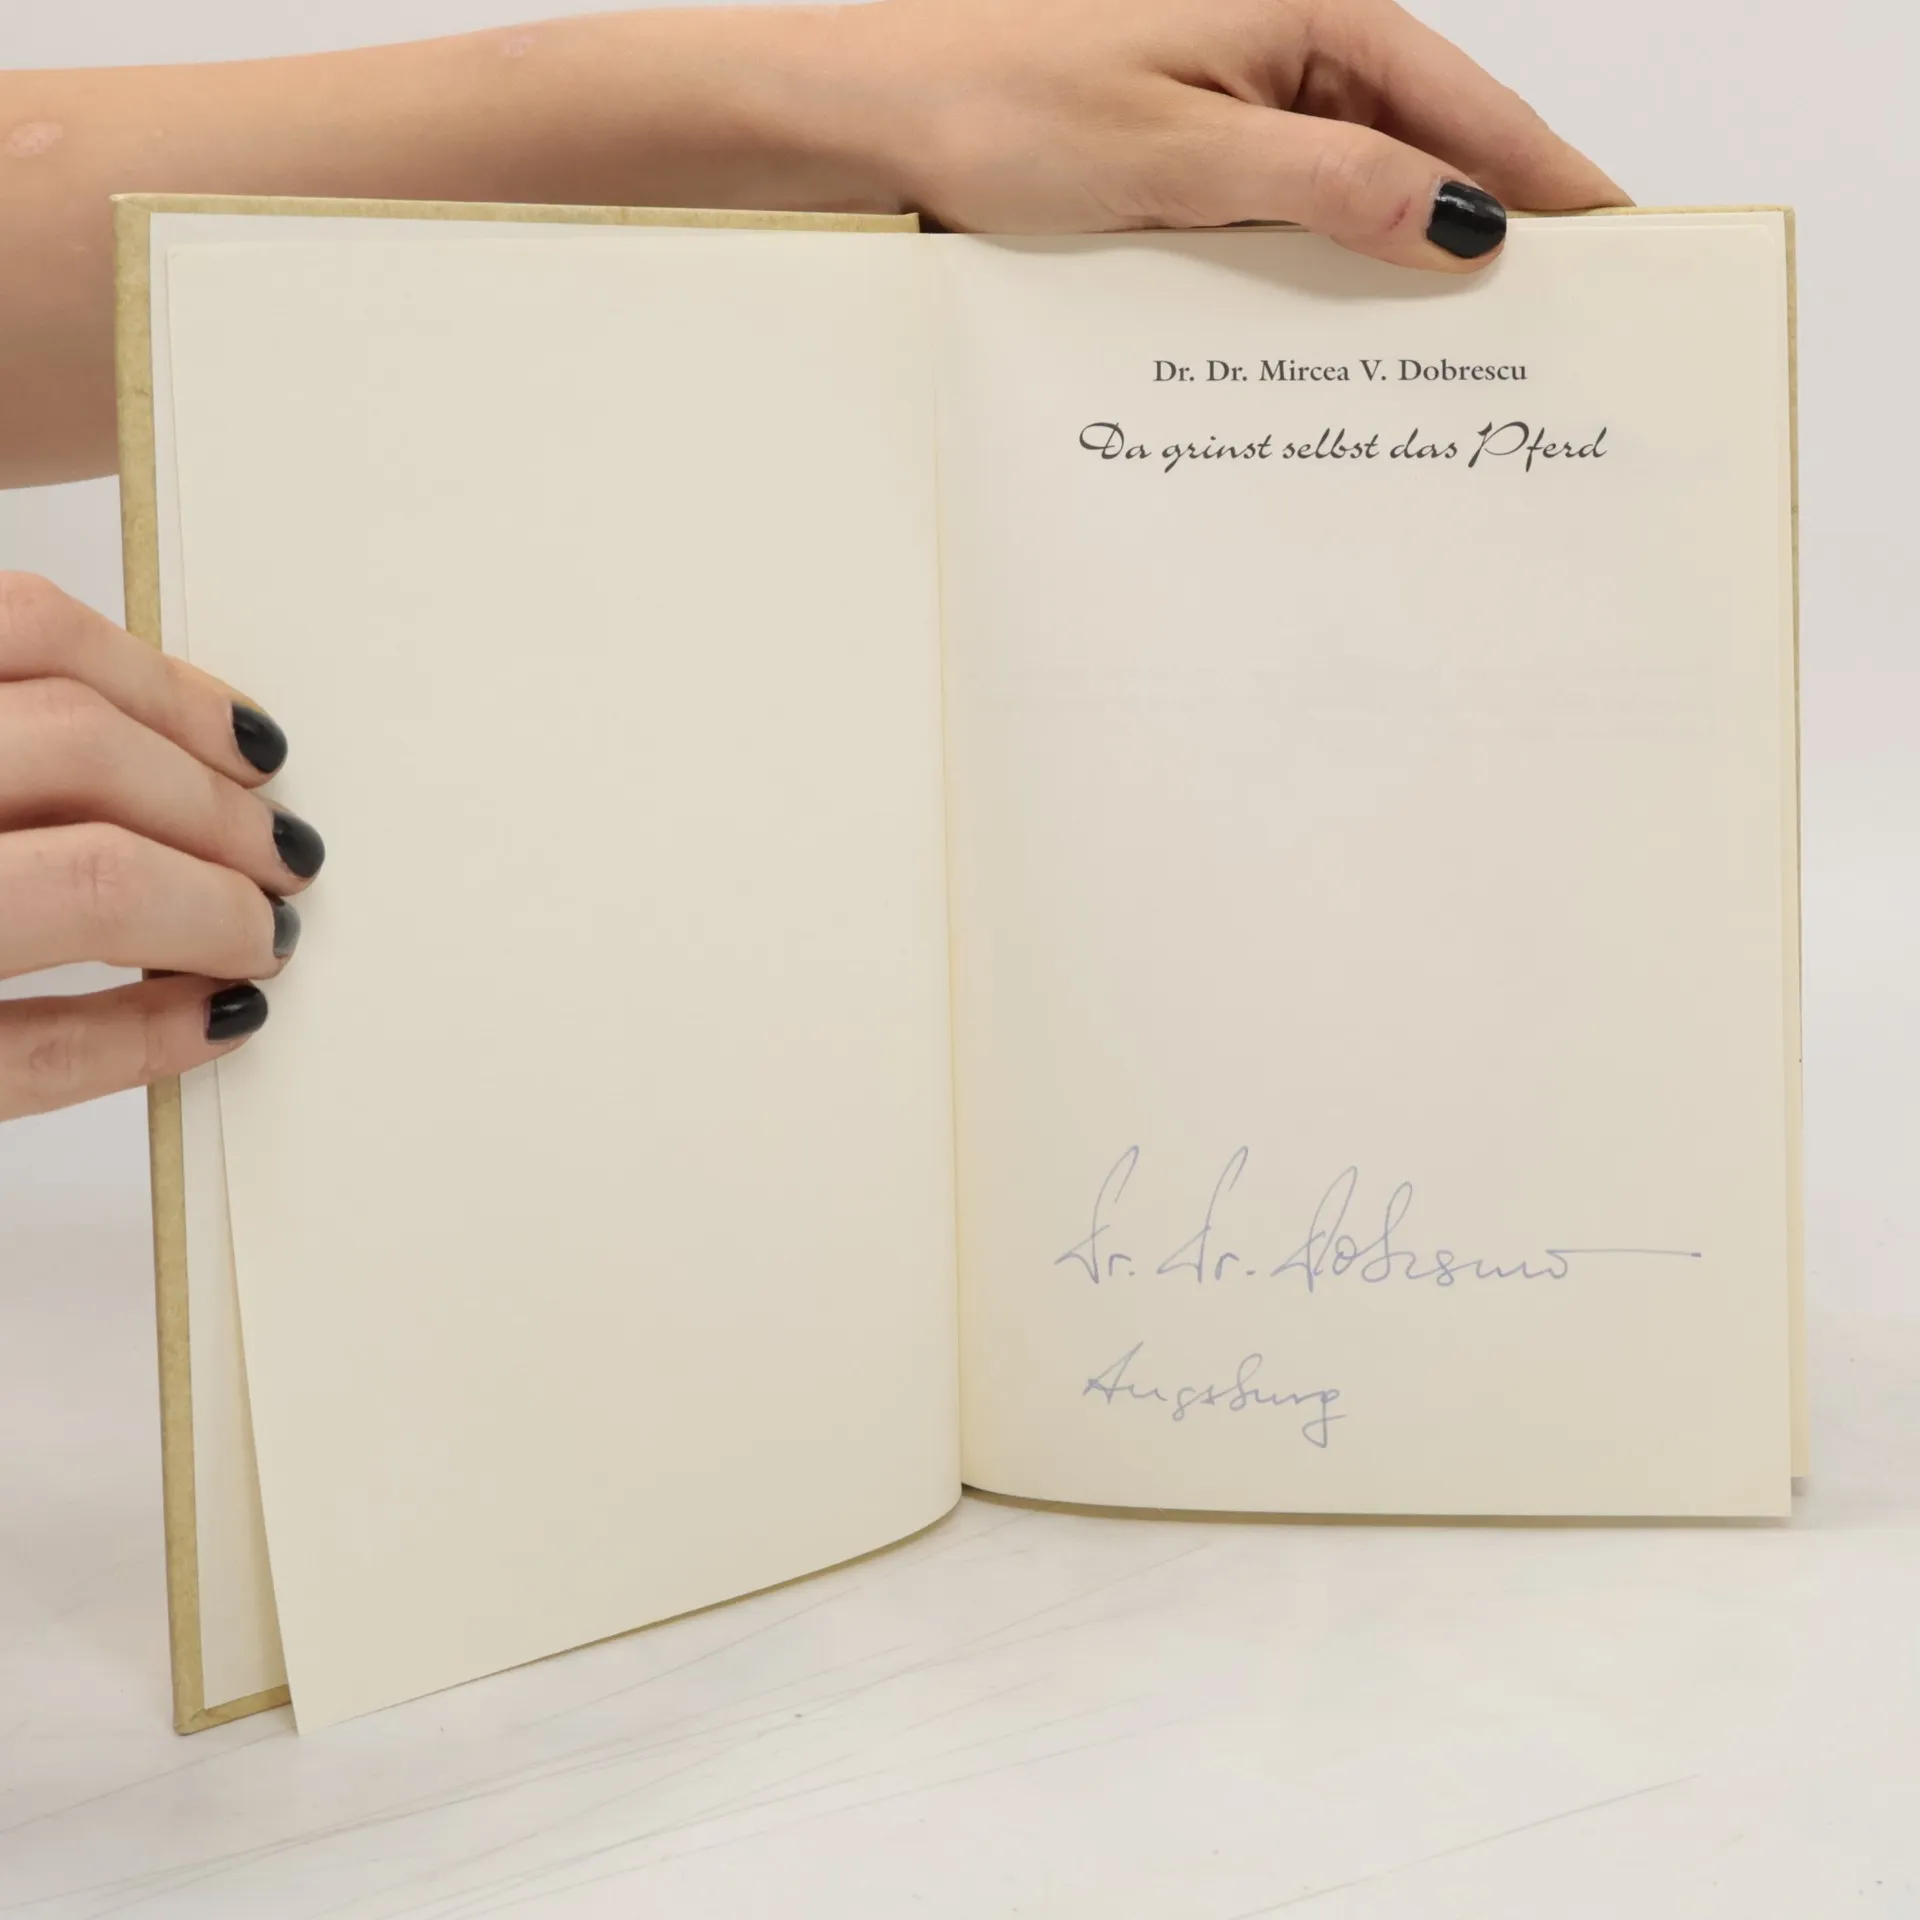 Dr. Dr. Mircea V. Dobrescu
Da grinst selbst das Pferd
Dr. Dr. Dobrescu
Augsburg